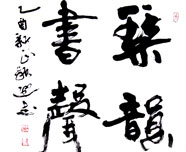 琴韻
書聲
乙酉秋